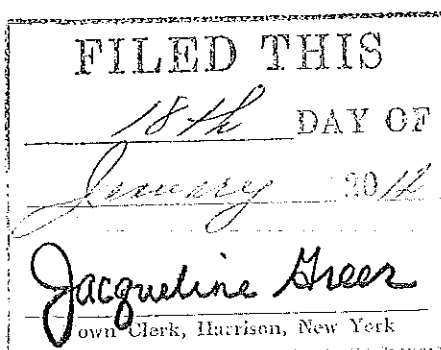 FILED THIS
18th DAY OF
January 2012
Jacqueline Greer
own Clerk, Harrison, New York